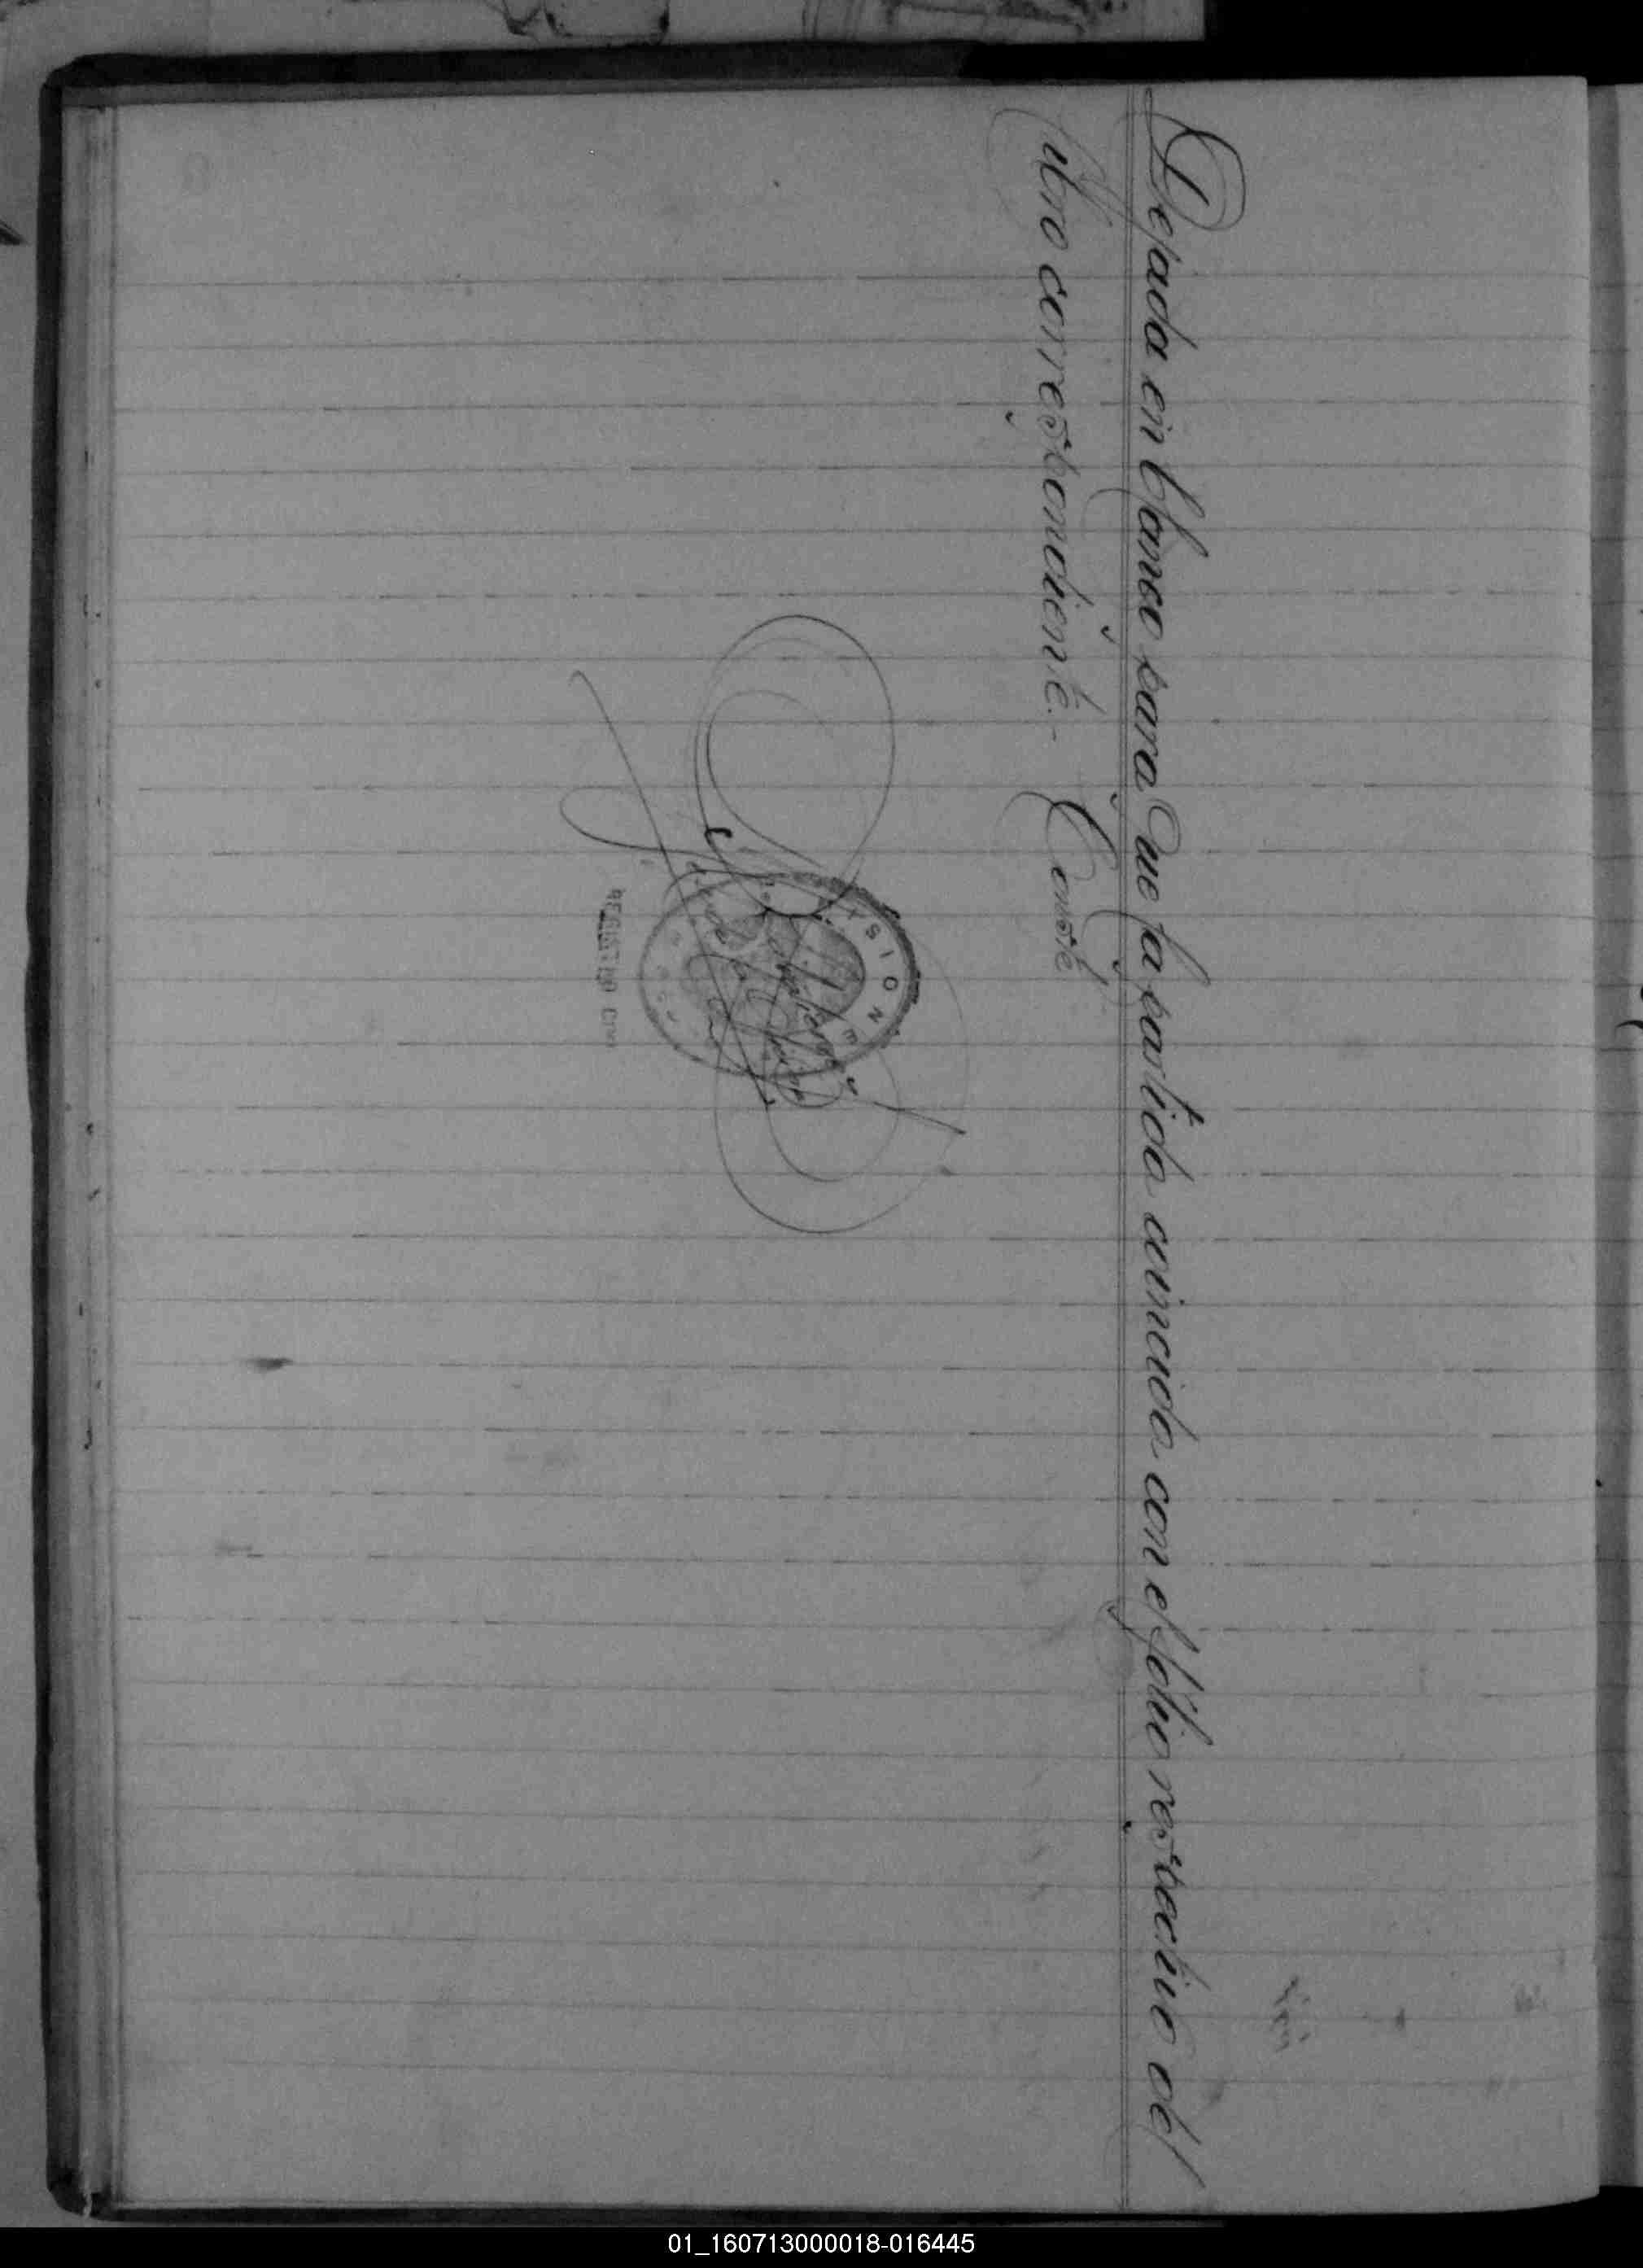 Dejada en blanco para que la partida coincida con el folio respectivo del
libro correspondiente.- Conste
REGISTRO CIVIL
01_160713000018-016445